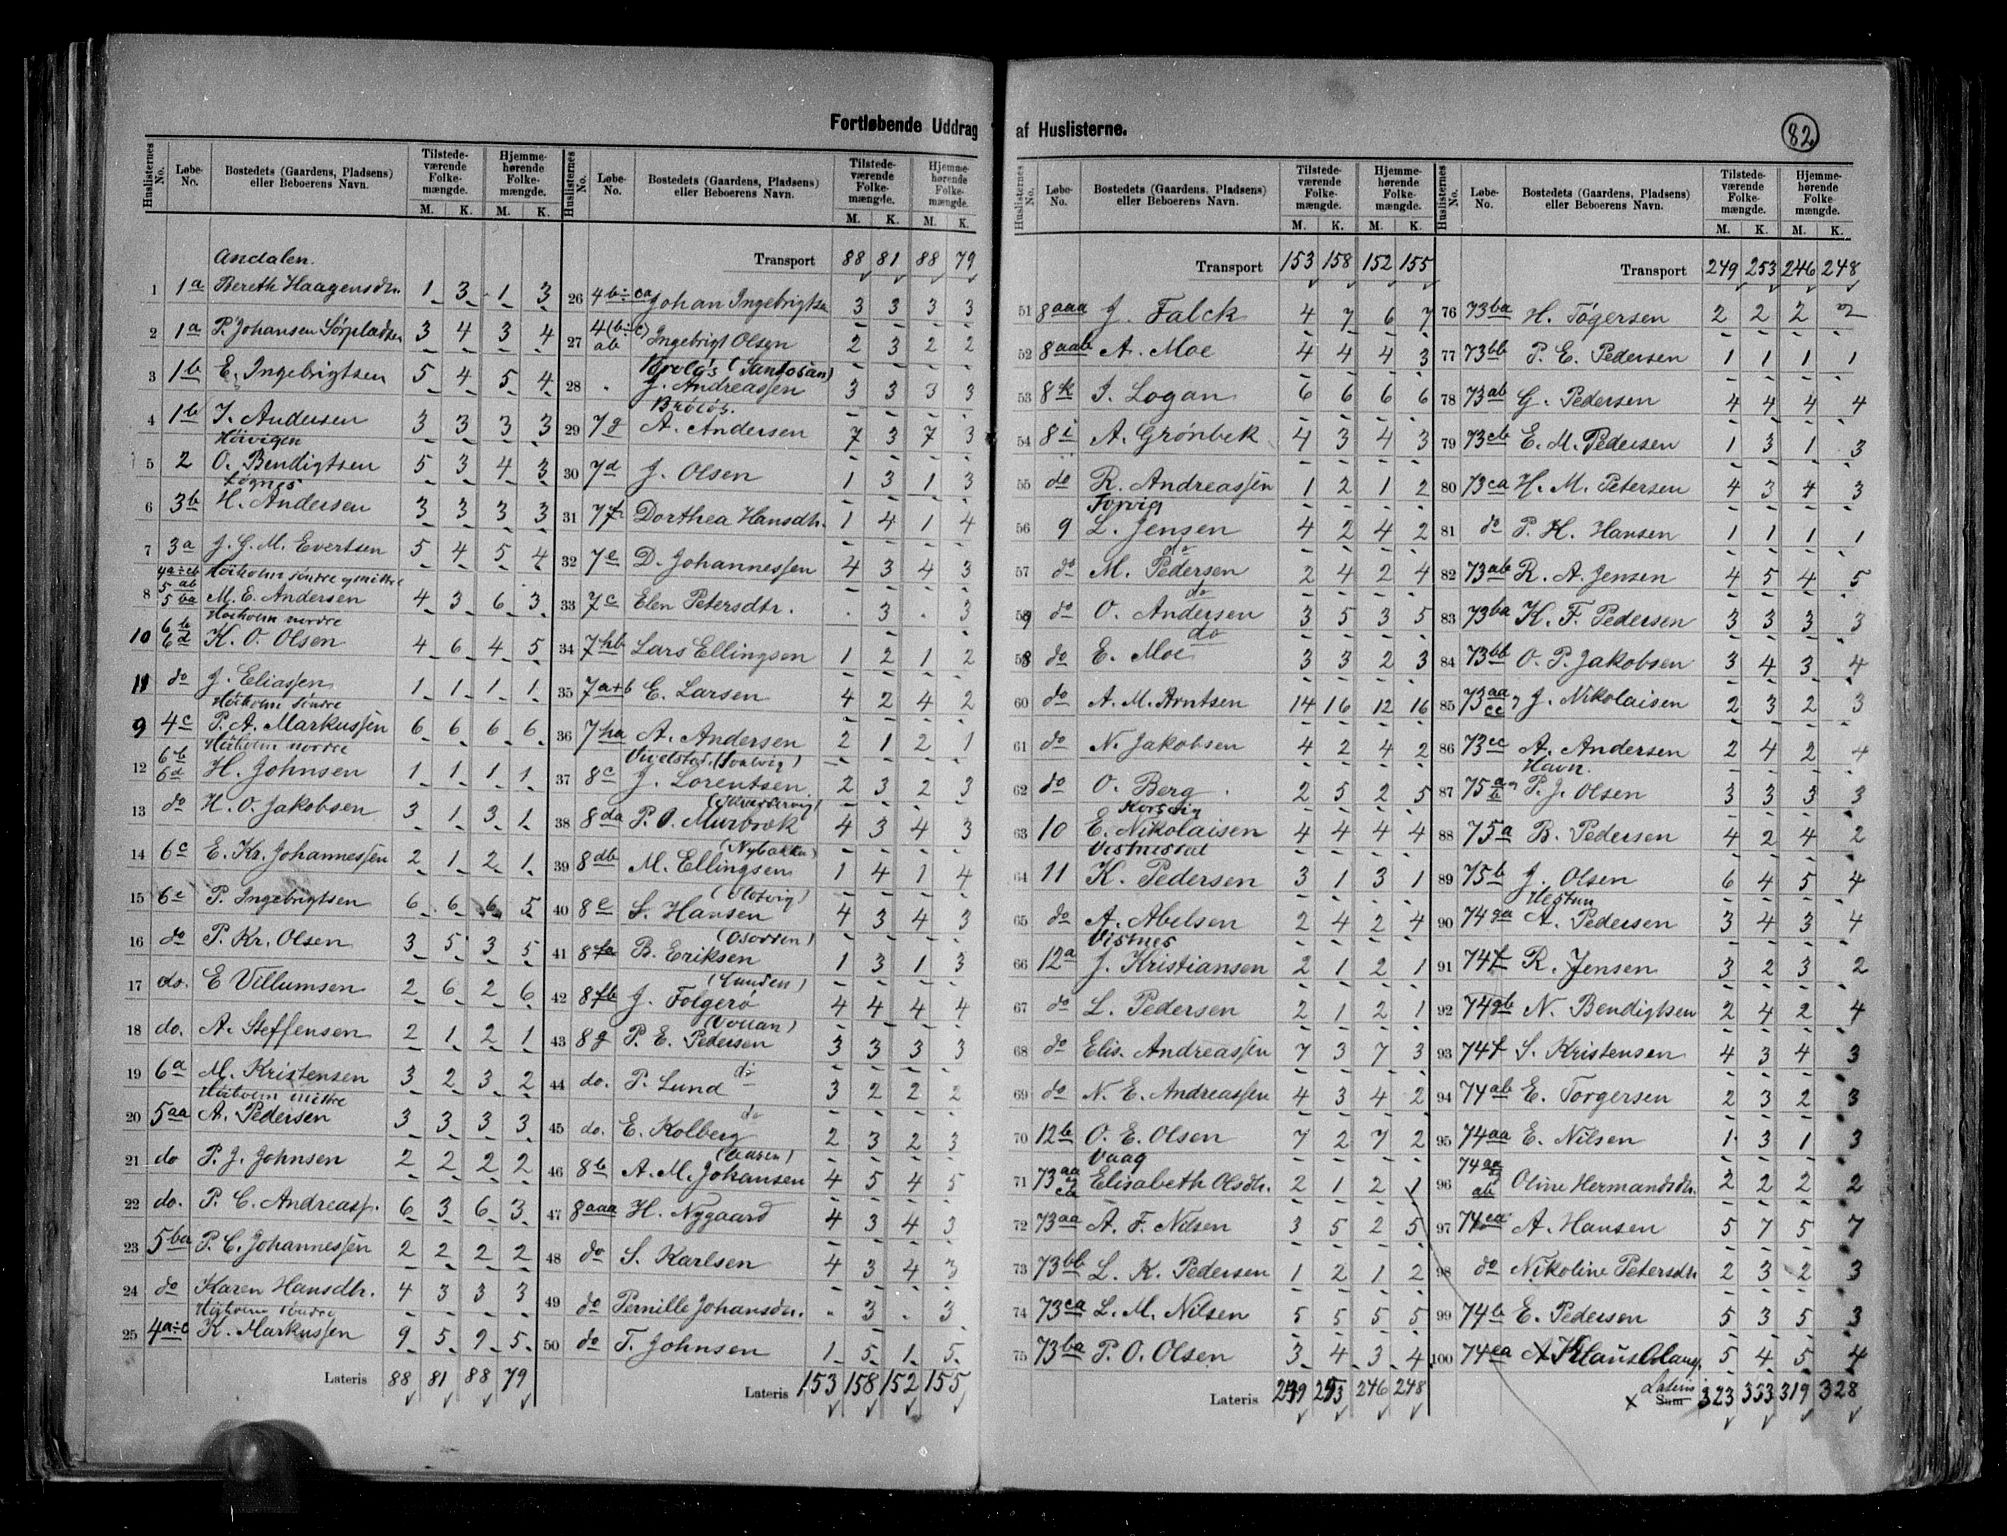 Fortløbende Uddrag af Huslisterne.
82
Huslisternes No. Løbe-No. Bostedets (Gaardens, Pladsens) eller Beboerens Navn. Tilstedeværende Folkemængde. M. K. Hjemmehørende Folkemængde. M. K.
Andalen.
1 1a Bereth Haagensdtr. 1 3 1 3
2 1a P. Johansen Sørpladsen 3 4 3 4
3 1b E. Ingebrigtsen 5 4 5 4
4 1b I. Andersen 3 3 3 3
Höivigen
5 2 O. Bendigtsen 5 3 4 3
Løgnes
6 3b H. Andersen 3 3 3 3
7 3a J. G. M. Evertsen 5 4 5 4
4a÷cb 5ab Höiholm söndre og midtre
8 5ba M. E. Andersen 4 3 6 3
Höiholm nordre
10 6b 6d K. O. Olsen 4 6 4 5
11 do J. Eliassen 1 1 1 1
Höiholm söndre
9 4c P. A. Markussen 6 6 6 6
Höiholm nordre
12 6b 6d H. Johnsen 1 1 1 1
13 do H. O. Jakobsen 3 1 3 1
14 6c E. Kr. Johannessen 2 1 2 1
15 6c P. Ingebrigtsen 6 6 6 5
16 do P. Kr. Olsen 3 5 3 5
17 do. E Villumsen 2 6 2 6
18 do. A. Steffensen 2 1 2 1
19 6a M. Kristensen 3 2 3 2
Höiholm midtre
20 5aa A. Pedersen 3 3 3 3
21 do P. J. Johnsen 2 2 2 2
22 do. P. C. Andreass. 6 3 6 3
23 5ba P. C. Johannessen 2 2 2 2
24 do Karen Hansdtr. 4 3 3 3
Höiholm söndre
25 4a÷c K. Markussen 9 5 9 5
Lateris 88 81 88 79
Huslisternes No. Løbe-No. Bostedets (Gaardens, Pladsens) eller Beboerens Navn. Tilstedeværende Folkemængde. M. K. Hjemmehørende Folkemængde. M. K.
Transport 88 81 88 79
26 4b÷ca Johan Ingebrigtsen 3 3 3 3
27 4(b÷c) ab Ingebrigt Olsen 2 3 2 2
28 J. Andreassen 3 3 3 3
29 7g A. Andersen 7 3 7 3
30 7d J. Olsen 1 3 1 3
31 7f Dorthea Hansdtr. 1 4 1 4
32 7e D. Johannessen 4 3 4 3
33 7c Elen Petersdtr. . 3 . 3
34 7hb Lars Ellingsen 1 2 1 2
35 7a+b E. Larsen 4 2 4 2
36 7ha A. Andersen 2 1 2 1
37 8c J. Lorentsen 2 3 2 3
38 8da P. O. Murbræk 4 3 4 3
(Nybakken)
39 8db M. Ellingsen 1 4 1 4
40 8e S. Hansen 4 3 4 3
41 8fa B. Eriksen 1 3 1 3
(Lunden)
42 8fb J. Folgerø 4 4 4 4
(Vollan)
43 8g P. E. Pedersen 3 3 3 3
44 do. P. Lund do 3 2 2 2
do
45 do. E. Kolberg 2 3 2 3
46 8b A. M. Johansen 4 5 4 5
47 8aaa H. Nygaard 4 3 4 3
48 do S. Karlsen 4 3 4 3
49 do Pernille Johansdtr. . 3 . 3
50 do T. Johnsen 1 5 1 5
Lateris 153 158 152 155
Huslisternes No. Løbe-No. Bostedets (Gaardens, Pladsens) eller Beboerens Navn. Tilstedeværende Folkemængde. M. K. Hjemmehørende Folkemængde. M. K.
Transport 153 158 152 155
51 8aaa J. Falck 4 7 6 7
52 8aab A. Moe 4 4 4 3
53 8k I. Logan 6 6 6 6
54 8i A. Grønbek 4 3 4 3
55 do R. Andreassen 1 2 1 2
Forvig
56 9 L. Jensen 4 2 4 2
do
57 do M. Pedersen 2 4 2 4
do
59 do O. Andersen 3 5 3 5
do
58 do E. Moe 3 3 2 3
60 do A. M. Arntsen 14 16 12 16
61 do N. Jakobsen 4 2 4 2
62 do O. Berg 2 5 2 5
63 10 E. Nikolaisen 4 4 4 4
64 11 K. Pedersen 3 1 3 1
65 do A. Abelsen 2 4 2 4
Vistnes
66 12a J. Kristiansen 2 1 2 1
67 do L. Pedersen 2 1 2 1
68 do Elis. Andreassen 7 3 7 3
69 do N. E. Andreassen 4 3 4 2
70 12b O. E. Olsen 7 2 7 2
Vaag
71 73aa og cb Elisabeth Olsdtr. 2 1 2 1
72 73aa A. F. Nilsen 3 5 2 5
73 73bb L. K. Pedersen 1 2 1 2
74 73ca L. M. Nilsen 5 5 5 5
75 73ba P. O. Olsen 3 4 3 4
Lateris 249 253 246 248
Huslisternes No. Løbe-No. Bostedets (Gaardens, Pladsens) eller Beboerens Navn. Tilstedeværende Folkemængde. M. K. Hjemmehørende Folkemængde. M. K.
Transport 249 253 246 248
76 73ba H. Tøgersen 2 2 2 2
77 73bb P. E. Pedersen 1 1 1 1
78 73ab G. Pedersen 4 4 4 4
79 73cb E. M. Pedersen 1 3 1 3
80 73ca H. M. Petersen 4 3 4 3
81 do P. H. Hansen 1 1 1 1
82 73ab R. A. Jensen 4 5 4 5
83 73ba K. F. Pedersen 3 3 3 3
84 73bb O. P. Jakobsen 3 4 3 4
85 73aa cc J. Nikolaisen 2 3 2 3
86 73cc A. Andersen 2 4 2 4
Havn.
87 75a b P. J. Olsen 3 3 3 3
88 75a B. Pedersen 4 2 4 2
89 75b J. Olsen 6 4 5 4
90 74ga A. Pedersen 3 4 3 4
91 74f R. Jensen 3 2 3 2
92 74gb N. Bendigtsen 2 4 2 4
93 74f S. Kristensen 4 3 4 3
94 74ab E. Torgersen 2 3 2 3
95 74aa E. Nilsen 1 3 1 3
96 74aa og ab Oline Hermandsdtr. 2 2 2 2
97 74ca A. Hansen 5 7 5 7
98 do Nikoline Petersdtr 2 3 2 3
99 74b E. Pedersen 5 3 5 3
100 74ca A 5 4 5 4
Lateris
x Sum 323 333 319 328